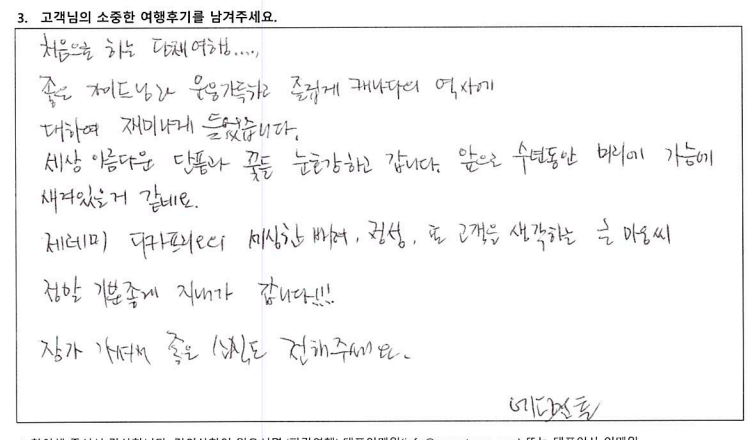 3. 고객님의 소중한 여행후기를 남겨주세요.
처음으로 하는 단체여행....,
좋은 가이드님과 웃음가득하고 즐겁게 캐나다의 역사에
대하여 재미나게 들었습니다.
세상 아름다운 단풍과 꽃들 눈호강하고 갑니다. 앞으로 수년동안 머리에 가슴에
새겨있을거 같네요.
제레미 디카프리오의 세심한 배려, 정성, 또 고객을 생각하는 큰 마음씨
정말 기분좋게 지내가 갑니다!!!
장가 가셔서 좋은 소식도 전해주세요.
에드먼튼